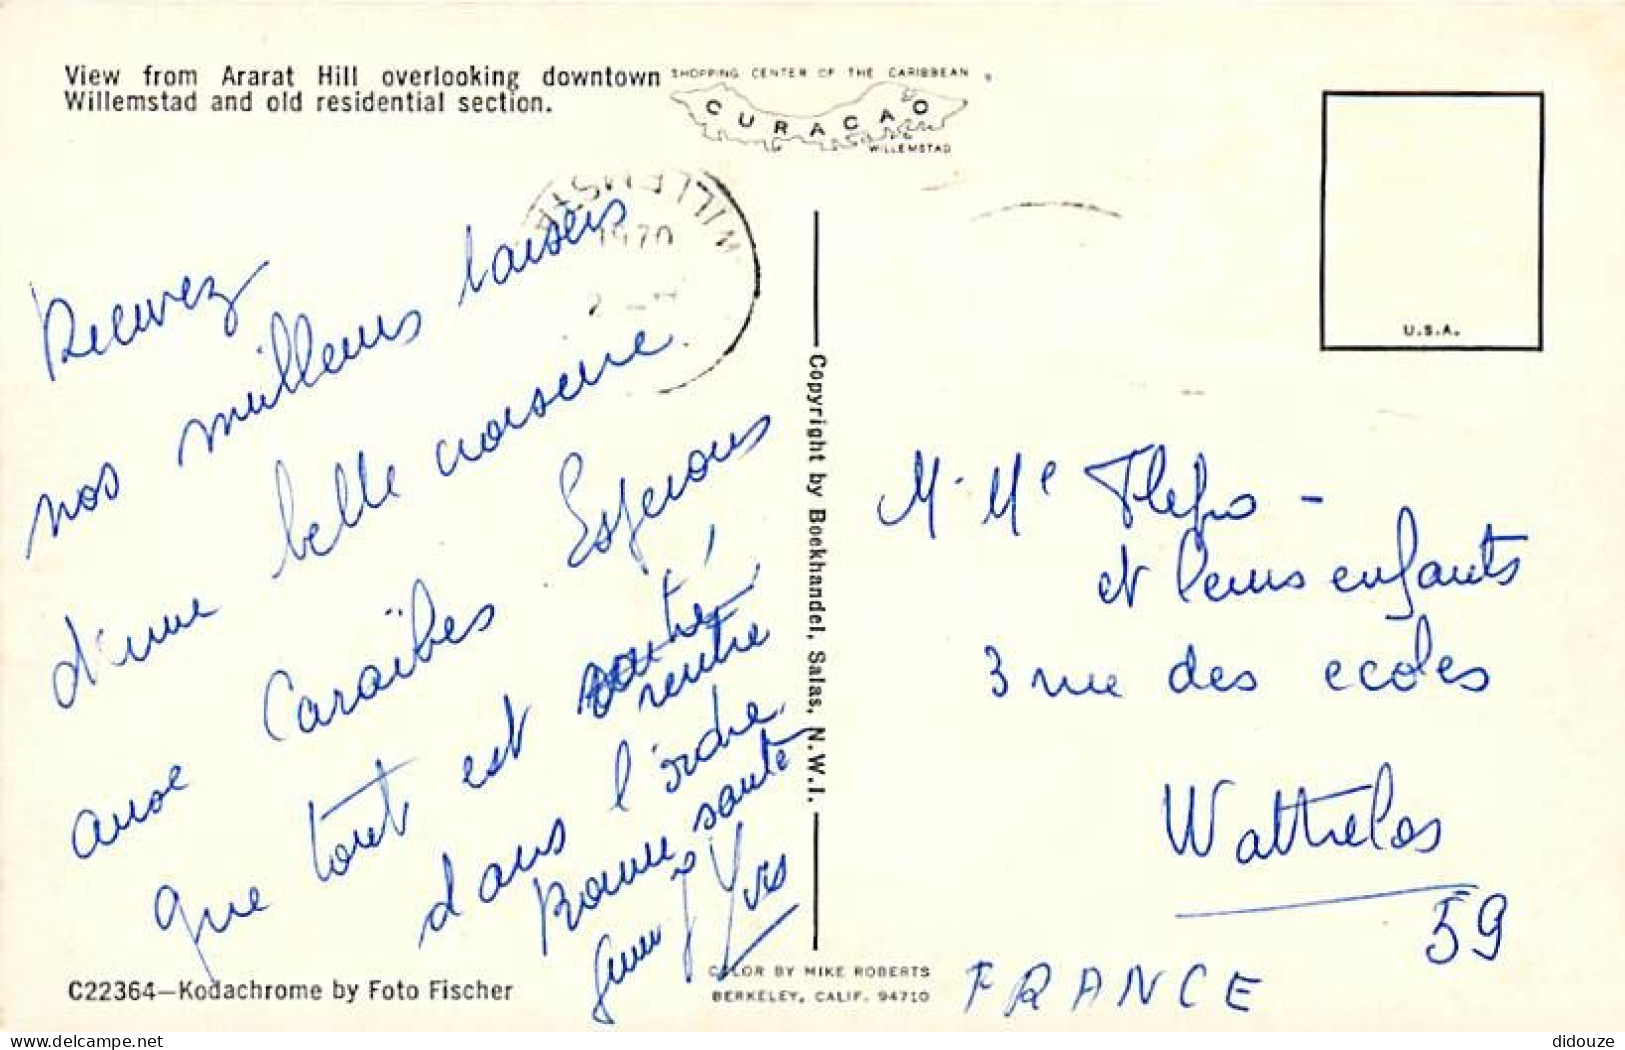 View from Ararat Hill overlooking downtown
Willemstad and old residential section.
SHOPPING CENTER OF THE CARIBBEAN
CURACAO
WILLEMSTAD
WILLEMSTA
1970
Recevez
nos meilleurs baisers
d'une belle croisière
aux Caraïbes. Espérons
que tout est
rentré
dans l'ordre
Bonne santé
Yves
C22364—Kodachrome by Foto Fischer
Copyright by Boekhandel, Salas, N.W.I.
COLOR BY MIKE ROBERTS
BERKELEY, CALIF. 94710
U.S.A.
M. Me
et leurs enfants
3 rue des ecoles
Wattrelos
59
FRANCE
didouze